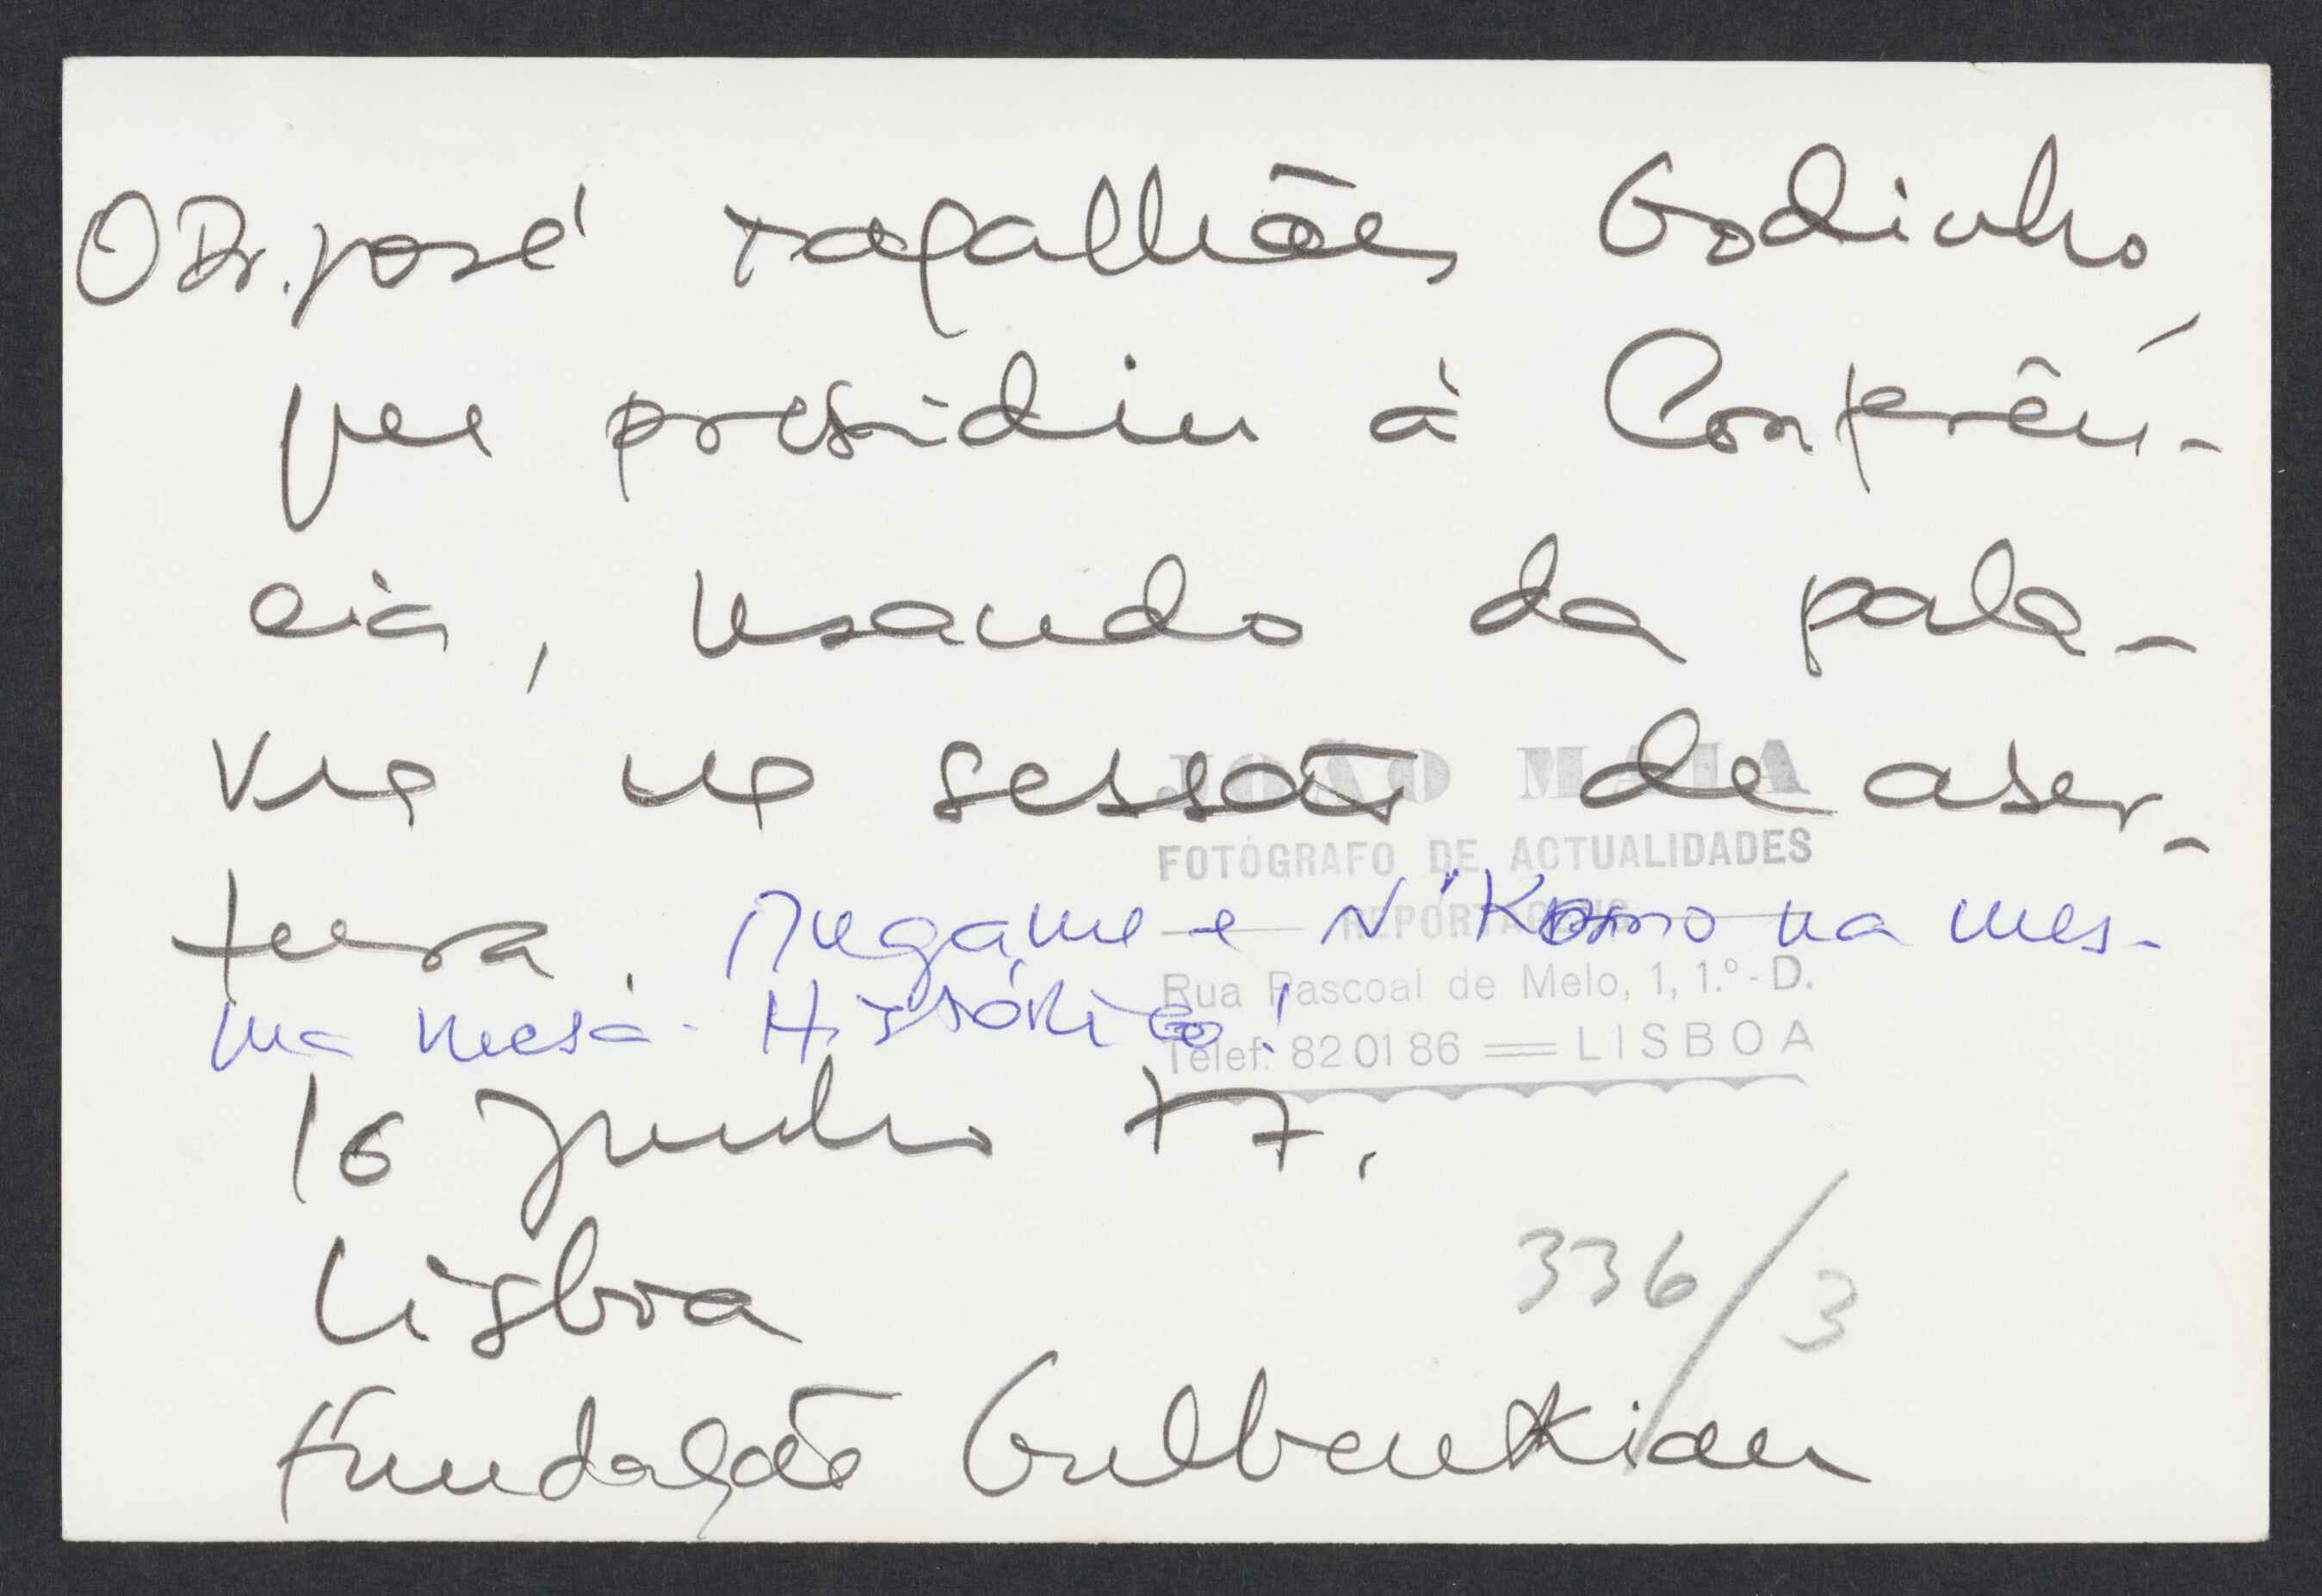 O Dr. José Magalhães Godinho,
que presidiu à Conferên-
cia, usando da pala-
vra na sessão de aber-
tura. Mugabe e N'Komo na mes-
ma mesa. Histórico!
16 Junho 77.
Lisboa
Fundação Gulbenkian
336/3
JOÃO MAIA
FOTÓGRAFO DE ACTUALIDADES
REPORTAGENS
Rua Pascoal de Melo, 1, 1.º-D.
Telef. 82 01 86 == LISBOA